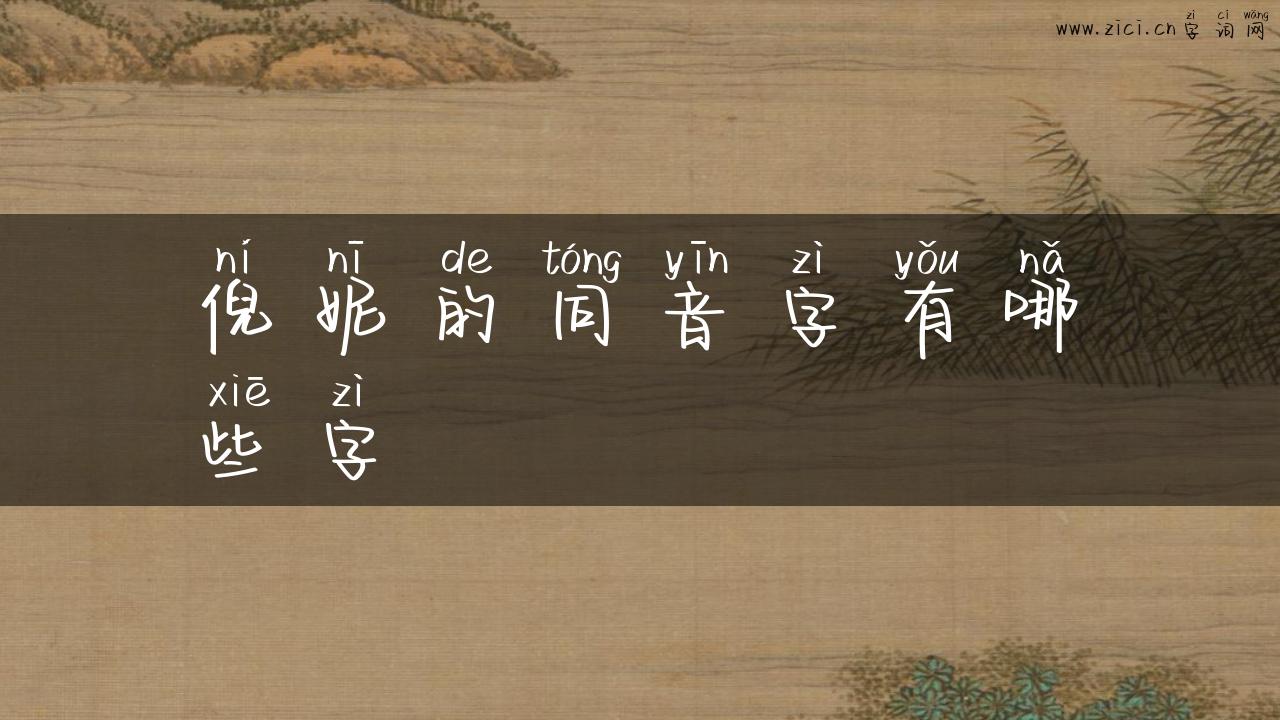 zì cí wǎng
www.zici.cn字词网
ní nī de tóng yīn zì yǒu nǎ
倪妮的同音字有哪
xiē zì
些字